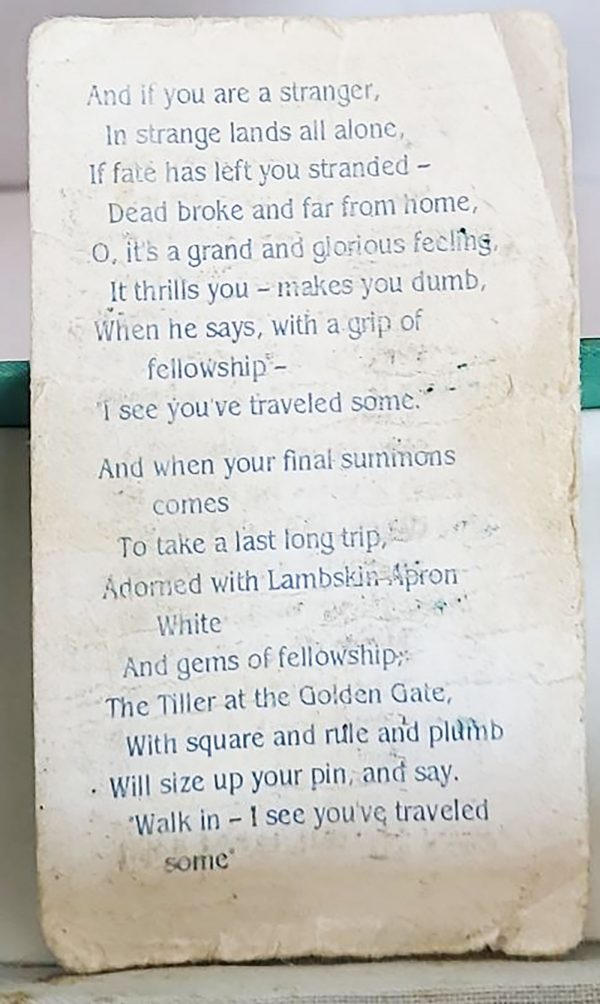 And if you are a stranger,
In strange lands all alone,
If fate has left you stranded –
Dead broke and far from home,
O, it's a grand and glorious feeling,
It thrills you – makes you dumb,
When he says, with a grip of
fellowship –
"I see you've traveled some."
And when your final summons
comes
To take a last long trip,
Adorned with Lambskin Apron
White
And gems of fellowship;
The Tiller at the Golden Gate,
With square and rule and plumb
Will size up your pin, and say.
"Walk in – I see you've traveled
some"